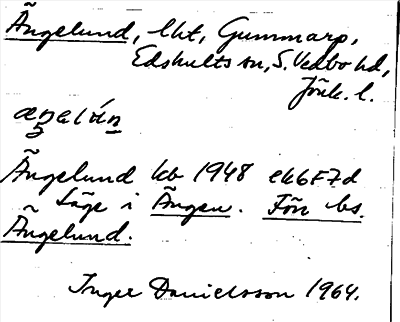 Ängelund, lht, Gummarp,
Edshults sn, S. Vedbo hd,
Jönk. l.
Ängelund kb 1948 ek6F7d
Läge i Ängen. Jfr bs.
Ängelund.
Inger Danielsson 1964.